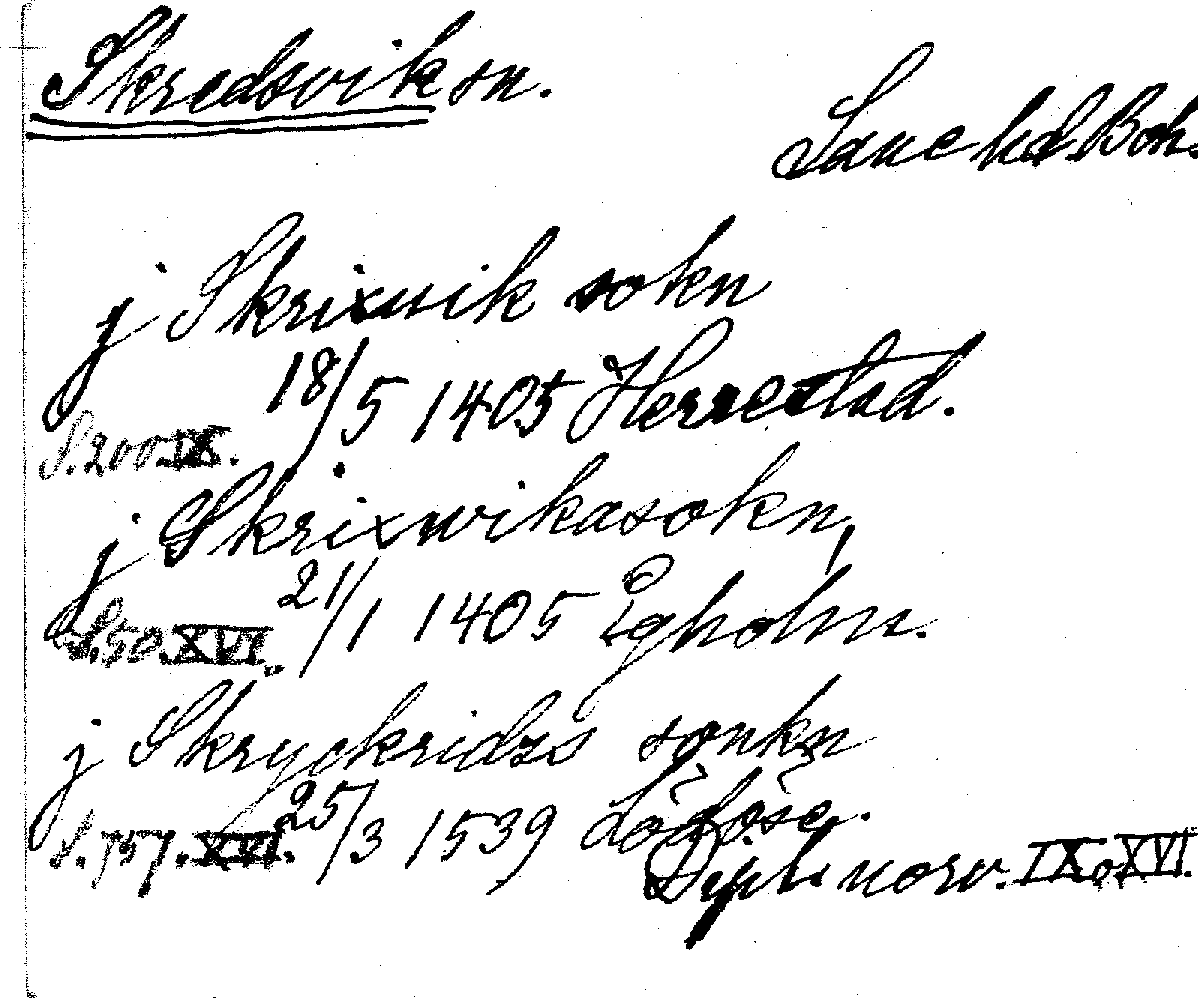 Skredsvik sn.
Lane hd. Boh
j Skrixuik sokn
18/5 1405 Herrestad.
S. 200. IX.
j Skrixwikasokn,
21/1 1405 Egholm.
S. 50. XVI.
j Skryckridzs sonkn
25/3 1539 Lödöse.
S. 757. XVI.
Dipl. norv. IX o XVI.